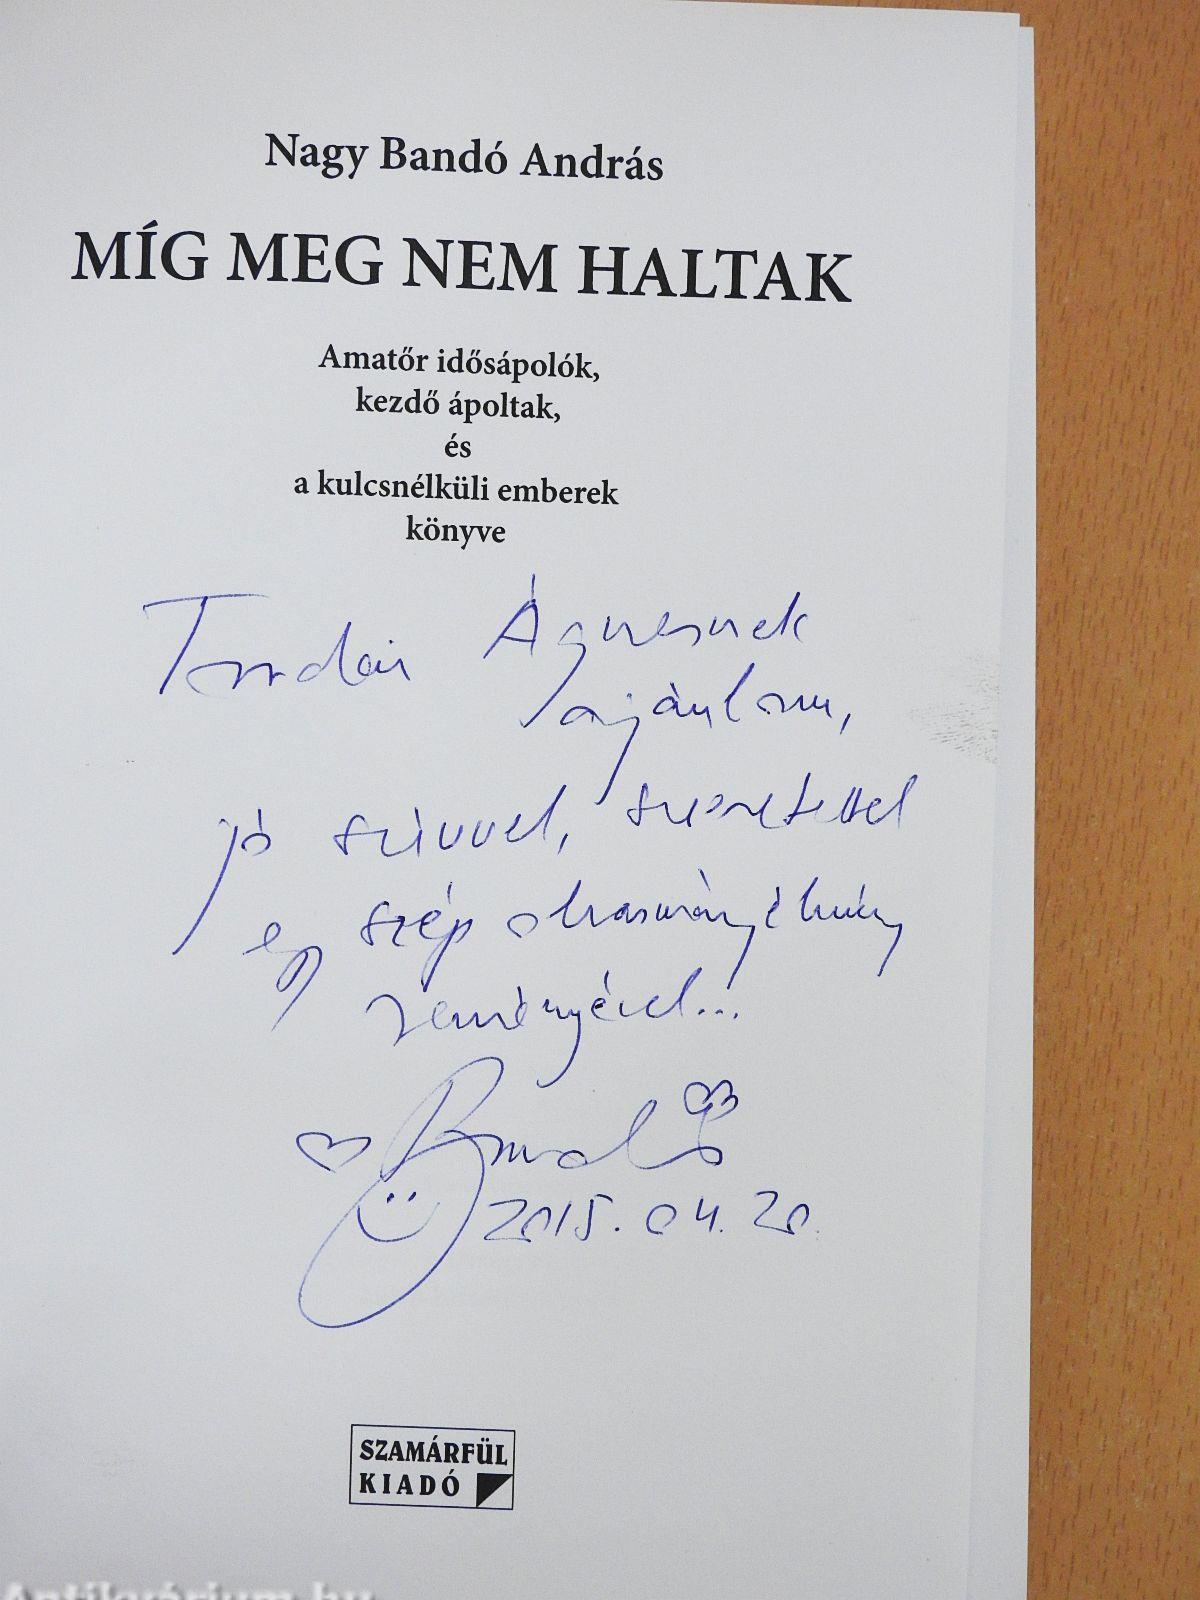 Nagy Bandó András
MÍG MEG NEM HALTAK
Amatőr idősápolók,
kezdő ápoltak,
és
a kulcsnélküli emberek
könyve
Ágnesnek
ajánlom,
jó szívvel, szeretettel
egy szép olvasmányélmény
reményével...
Bandó
2015. 04. 20.
SZAMÁRFÜL
KIADÓ
Antikvárium.hu